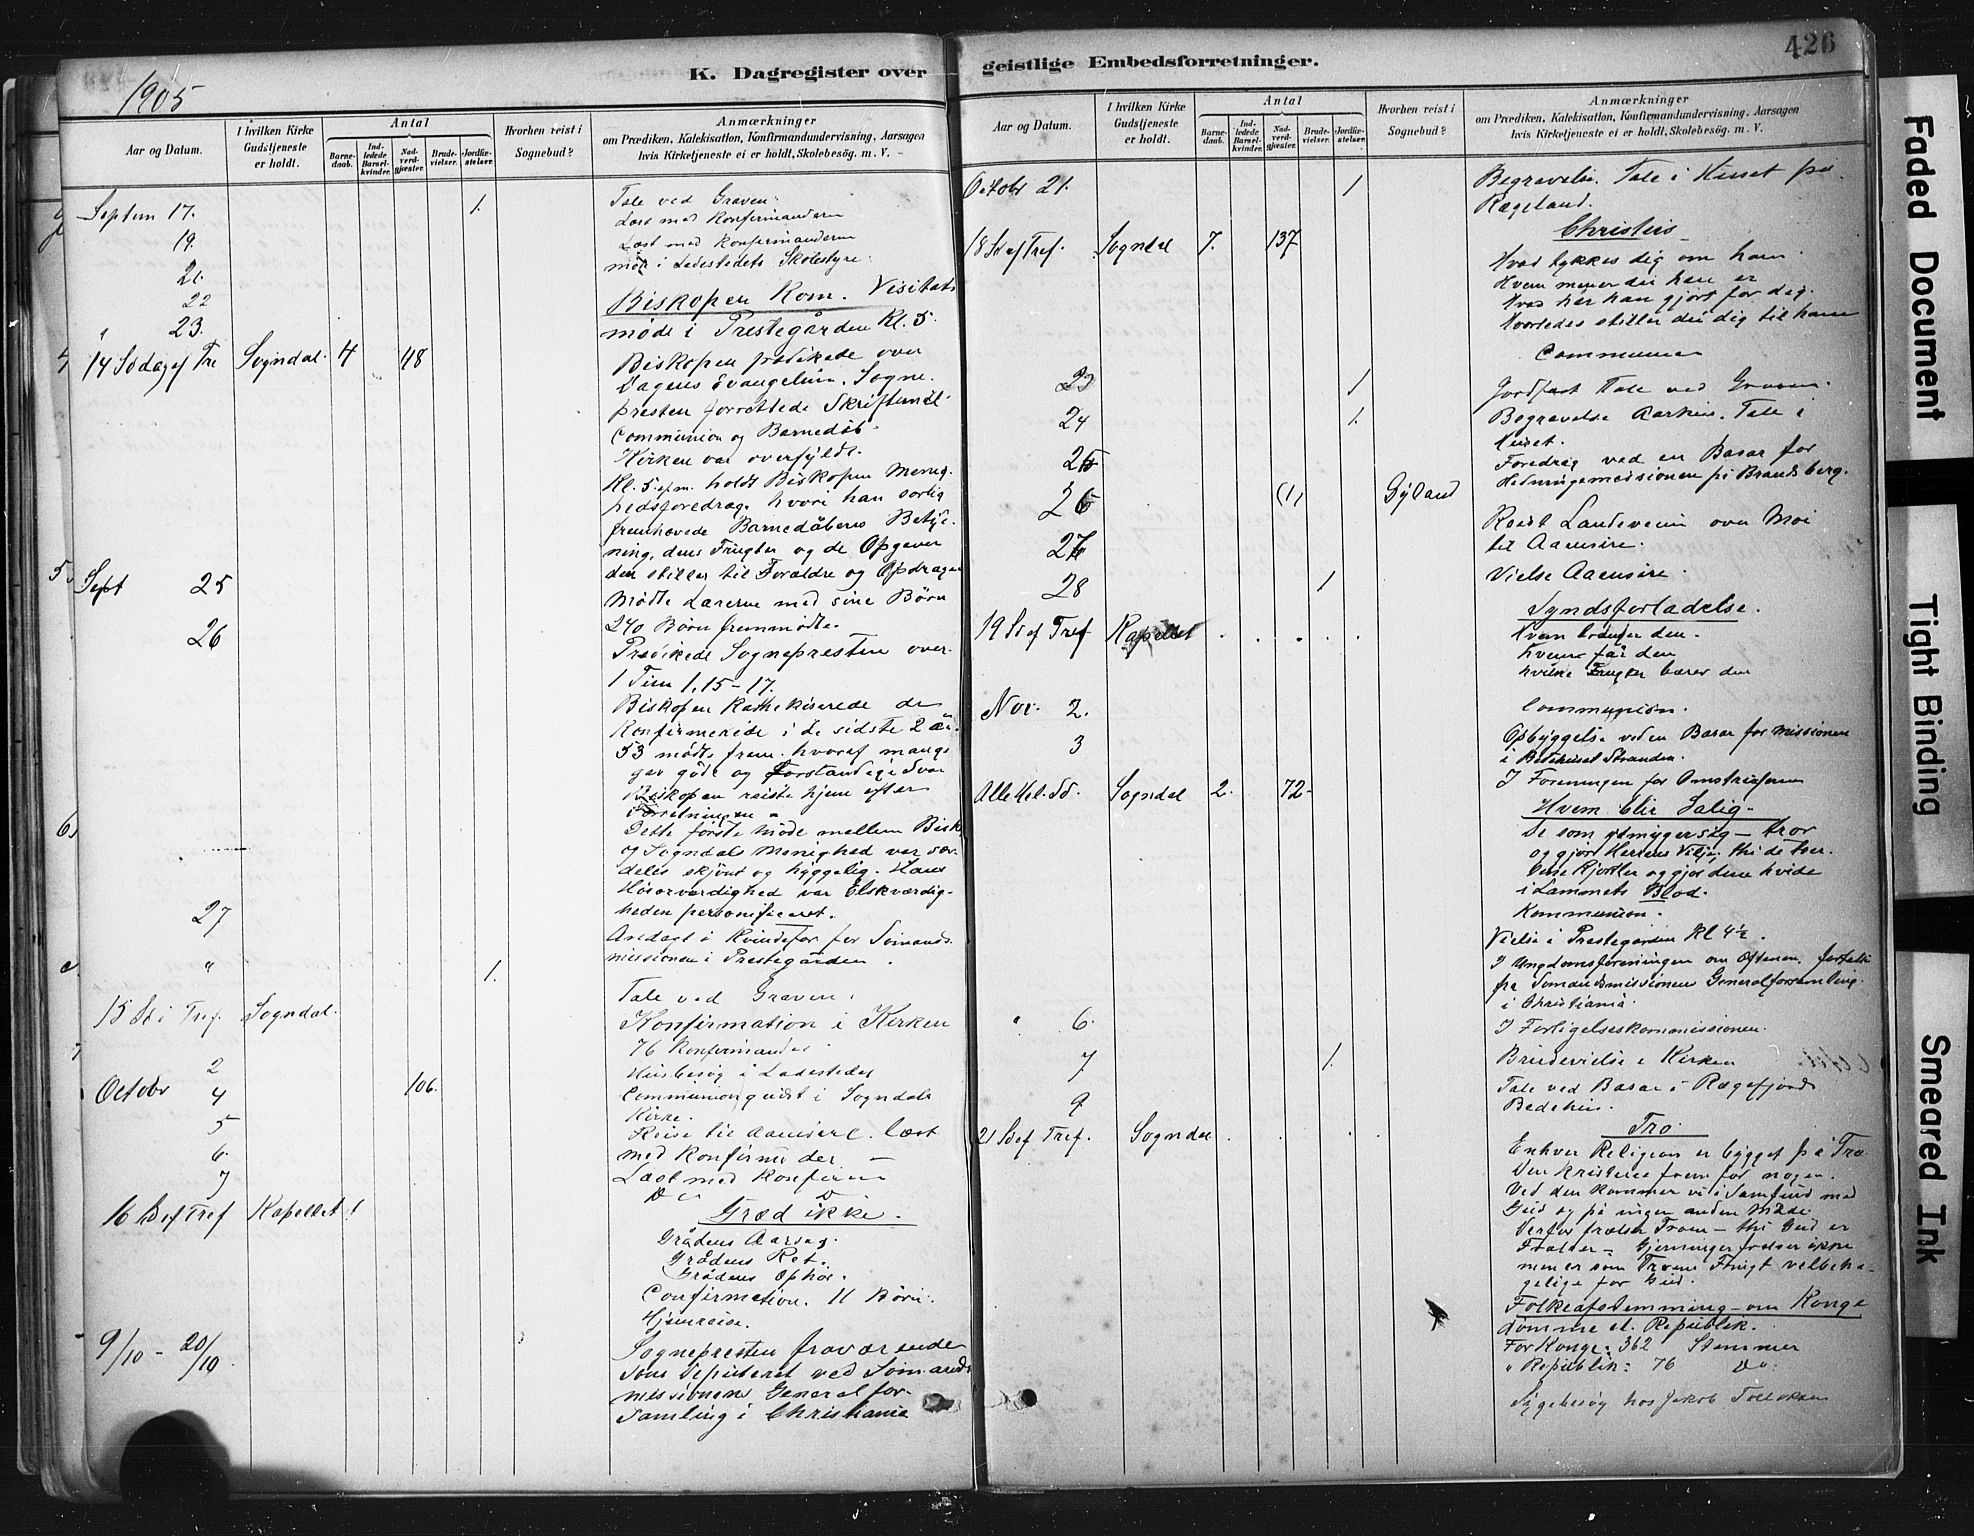 426
1905
K. Dagregister over
geistlige Embedsforretninger.
Aar og Datum.
I hvilken Kirke Gudstjeneste er holdt.
Antal
Barnedaab.
Indledede Barselkvinder.
Nadverdgjæster.
Brudevielser.
Jordfæstelser.
Hvorhen reist i Sognebud?
Anmærkninger
om Prædiken, Katekisation, Konfirmandundervisning, Aarsagen
hvis Kirketjeneste ei er holdt, Skolebesög. m. V.
Septem 17. 1. Tale ved Graven.
Læst med Konfirmanderne
19. Læst med Konfirmanderne
21. møde i Ladestedets Skolestyre.
22 Biskopen Kom. Visitats
" 23. møde i Prestegården Kl. 5.
14 Sødag ef Tre Sogndal. 4 48 Biskopen prædikede over
Dagens Evangelium. Sogne-
presten forrettede Skriftemål
Communion og Barnedåb.
Kirken var overfyldt.
Kl. 5. efm. holdt Biskopen Menig-
hedsforedrag, hvori han særlig
fremhævede Barnedåbens Betyd-
ning, dens Frugter og de Opgaver
den stiller til Forældre og Opdragere
Sept 25 Mødte Lærerne med sine Børn
240 Børn fremmødte.
26 Prædikede Sognepresten over
1 Tim 1, 15-17.
Biskopen Kathekiserede de
Konfirmerede i de sidste 2 år.
53 mødte frem. hvoraf mange
gav gode og Forstandige Svar
Biskopen reiste hjem efter
Forretningen
Dette første Møde mellem Bisk.
og Sogndals Menighed var sær-
deles skjønt og hyggelig. Hans
Høiærværdighed var Elskværdig-
heden personificeret.
27 Andagt i Kvindefor for Sømands-
missionen i Prestegården.
" 1. Tale ved Graven.
15 Sd i Tref. Sogndal. Konfirmation i Kirken
76 Konfirmander
2 Husbesøg i Ladestedet
Octobr 4 106. Communiongudst i Sogndals
Kirke.
5 Reise til Aaensire. læst
6. med Konfirmander
7 Læst med Konfirm
16 Sd ef Tref Kapellet Græd ikke.
Grådens Aarsag.
Grådens Ret.
Grådens Ophør.
Confirmation. 11 Børn.
Hjemreise.
9/10 - 20/10 Sognepresten fraværende
som Deputeret ved Sømands-
missionens Generalfor-
samling i Christiania
Octobr 21. 1 Begravelse. Tale i Huset på
Rægeland.
18 Sd ef Tref. Sogndal 7. 137 Christus
Hvad tykkes dig om ham.
Hvem mener du han er
Hvad har han gjort for dig.
Hvorledes stiller du dig til ham
Communion
23 1 Jordfæst Tale ved Graven.
24 1. Begravelse Aarkin. Tale i
Huset.
25 Foredrag ved en Basar for
Hedningemissionen på Brandsberg.
26 (1) Gyland
27 Reist Landeveien over Moi
til Aaensire.
28 1 Vielse Aaensire.
19 Sd ef Tref Kapellet Syndsforladelse.
Hvem bringer den.
hvem får den
hvilke Frugter bærer den
Communion.
Nov. 2. Opbyggelse ved en Basar for Missionen
i Bedehuset Stranden.
3 I Foreningen for Omstreiferne
Alle Hel. Sd. Sogndal 2. 72 Hvem blir Salig.
De som ydmyger sig - tror
og gjør Herrens Vilje, thi de tver-
dine Kjortler og gjør dem hvide
i Lammets Blod.
Kommunion.
Vielse i Prestegården Kl 4½.
I Ungdomsforeningen om Aftenen. fortalte
fra Sømandsmissionens Generalforsamling
i Christiania.
" 6. I Forligelseskommissionen.
7 1. Brudevielse i Kirken
9 Tale ved Basar i Rægefjord
Bedehus.
21 Sd ef Tref. Sogndal Tro.
Enhver Religion er bygget på Tro
Den kristelige frem for nogen.
Ved den kommer vi i Samfund med
Gud og på ingen anden Måde.
Derfor frælser Troen - thi Gud er
Frælser - Gjerninger frelser ikke
men er som Troens Frugt velbeha-
gelige for Gud.
Folkeafstemming om Konge
dømme el. Republik.
For Konge: 362 Stemmer
" Republik: 76 Do.
Sygebesøg hos Jakob Tollaksen
Faded Document
Tight Binding
Smeared Ink